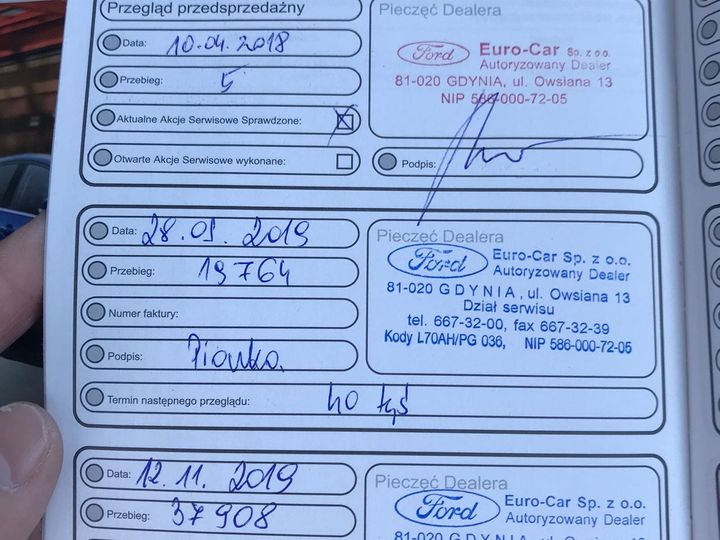 Przegląd przedsprzedażny
Data: 10.04.2018
Przebieg: 5
Aktualne Akcje Serwisowe Sprawdzone:
Otwarte Akcje Serwisowe wykonane:
Pieczęć Dealera
Ford Euro-Car Sp. z o.o.
Autoryzowany Dealer
81-020 GDYNIA, ul. Owsiana 13
NIP 586-000-72-05
Podpis:
Data: 28.01.2019
Przebieg: 19764
Numer faktury:
Podpis:
Termin następnego przeglądu: 40 tyś
Pieczęć Dealera
Ford Euro-Car Sp. z o.o.
Autoryzowany Dealer
81-020 GDYNIA, ul. Owsiana 13
Dział serwisu
tel. 667-32-00, fax 667-32-39
Kody L70AH/PG 036, NIP 586-000-72-05
Data: 12.11.2019
Przebieg: 37908
Pieczęć Dealera
Ford Euro-Car Sp. z o.o.
Autoryzowany Dealer
81-020 GDYNIA, ul. Owsiana 13